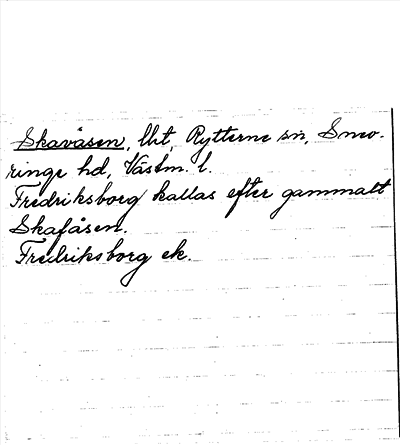 Skavåsen, lht, Rytterne sn, Snev-
ringe hd, Västm. l.
Fredriksborg kallas efter gammalt
Skafåsen.
Fredriksborg ek.